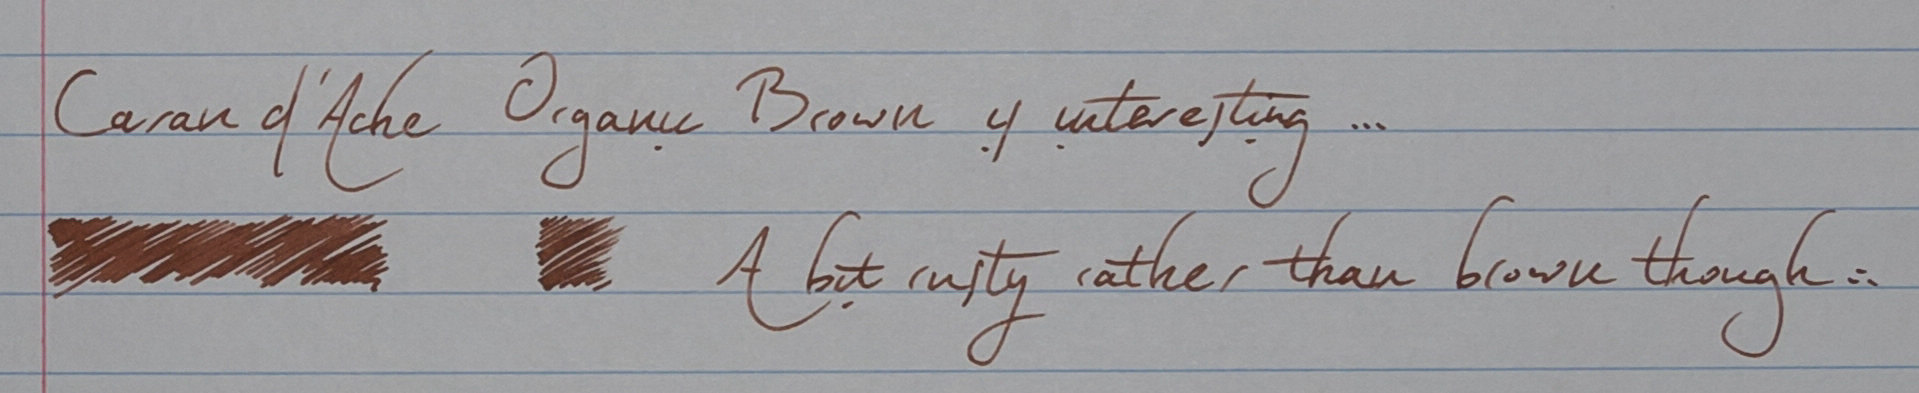 Caran d'Ache Organic Brown is interesting ...
A bit rusty rather than brown though ...